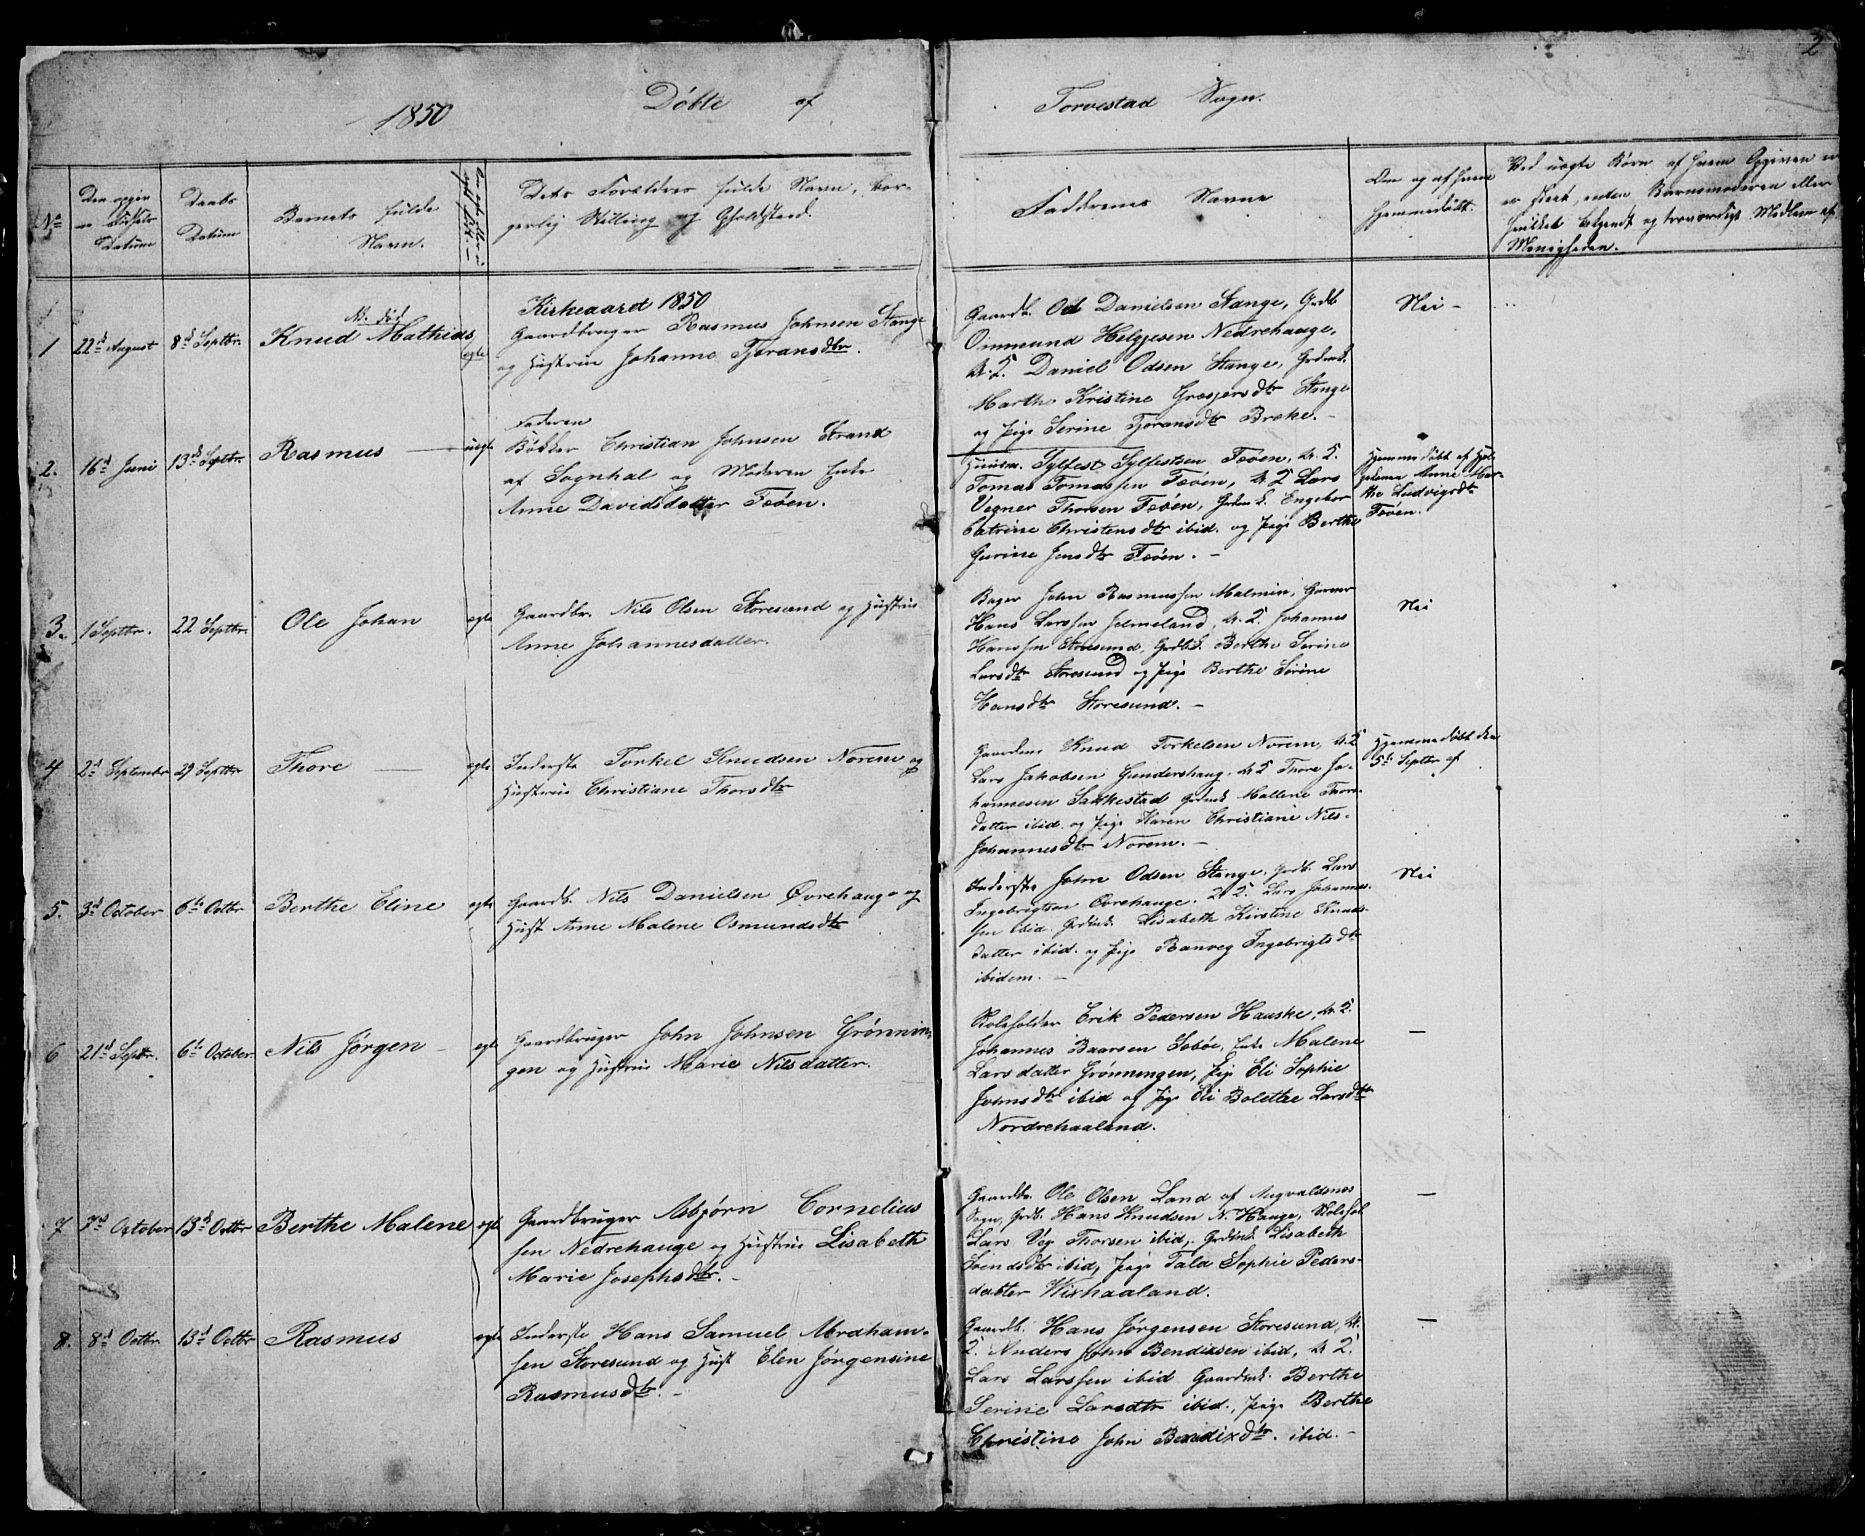 2
1850 Döbte af Torvestad Sogn.
No
Den opgivne Födsels Datum
Daabs Datum
Barnets fulde Navn.
Dets Forældres fulde Navn, borgerlig Stilling og Opholdsted.
Faddernes Navne
Om og af hvem hjemmedöbt.
Ved uægte Börn af hvem Opgiven er
skeet, enten Barnemoderen eller
hvilket bekjendt og troværdigt Medlem af
Menigheden.
Kirkeaaret 1850
1 22d August 8d Septbr. Knud Mathias ægte
Gaardbruger Rasmus Johnsen Stange
og Hustrue Johanne Tjøransdtr.
Gaardb. Od Danielsen Stange, Grdb
Ommund Helgjesen Nedrehauge,
U. K. Daniel Odsen Stange, Grdmk.
Marthe Kristine Grosjersdtr Stange
og Pige Serine Tjøransdtr Breke. –
Nei –
2. 16d Juni 13d Septbr. Rasmus — uegte
Faderen
Bödker Christian Johnsen Strand
af Sognhal og Moderen Enke
Anne Davidsdatter Feöen.
Huusm. Sylfest Sylfestsen Feöen, U. K.
Tomas Tomassen Feöen, U. K Lars
Vegner Thorsen Feöen, Grdmk. Engebor
Catrine Christensdtr ibid. og Pige Berthe
Gurine Jensdtr Feöen. –
Hjemmedöbt af
Anne Mar-
the Ludvigsdtr
Feöen.
3. 1 Septbr. 22 Septbr. Ole Johan egte
Gaardbr. Nils Olsen Storesund og Hustrue
Anne Johannesdatter.
Bager John Rasmussen Malmin,
Hans Larssen Helmeland, U. K. Johannes
Hanssen Storesund, Grdbk. Berthe Serine
Larsdtr Storesund og Pige Berthe Serine
Hansdtr Storesund. –
Nei
4 2d September 29 Septbr Thore — egte
Inderste Torkel Knudsen Norem og
Hustrue Christiane Thorsdtr
Gaardm. Knud Torkelsen Norem, U. K
Lars Jakobsen Gundershaug. U K Thore Jo-
hannesen Sakkestad Grdmk Mallene Thors-
datter ibid. og Pige Karen Christiane Nils-
Johannesdtr Norem. –
Hjemmedöbt den
5te Septbr af
5. 3d October 6te Octbr Berthe Eline egte
Gaardb. Nils Danielsen Øvrehauge og
Hust Anne Malene Osmundsdtr
Inderste John Odsen Stange, Grdb. Lars
Ingebrigtsen Øvrehauge. U K. Lars Johannes-
sen ibid. Grdmk. Lisabeth Kirstine Knuds-
datter ibid. og Pige Ranveg Ingebrigtsdtr
ibidem. –
Nei
6 21d Septbr. 6te October Nils Jørgen – egte
Gaardbruger John Johnsen Grønnin-
gen og Hustrue Marie Nilsdatter.
Skoleholder Erik Pedersen Hauske, U. K.
Johannes Baarsen Seböe, Enke Malene
Larsdatter Grønningen, Pige Eli Sophie
Johnsdtr ibid og Pige Eli Bolethe Larsdtr
Nordrehaaland.
—
7 7d October 13d Octbr Berthe Malene egte
Gaardbruger Asbjørn Cornelius
sen Nedrehauge og Hustrue Lisabeth
Marie Josephsdtr. –
Gaardbr. Ole Olsen Land af Augvaldsnes
Sogn, Grdb. Hans Knudsen N. Hauge, Skolehol.
Lars Veg Thorsen ibid, Grdmk. Lisabeth
Svendsdtr ibid, Pige Tala Sophie Peders-
datter Wixhaaland.
—
8. 8d Octbr. 13d Octbr Rasmus egte
Inderste Hans Samuel Abraham-
sen Storesund og Hust Elen Jørgensine
Rasmusdtr. –
Gaardb. Hans Jørgensen Storesund, U.
K. Anders John Bendixsen ibid, U K.
Lars Larssen ibid Gaardmk. Berthe
Serine Larsdtr ibid., Pige Berthe
Christine John Bendixdtr. ibid. –
—